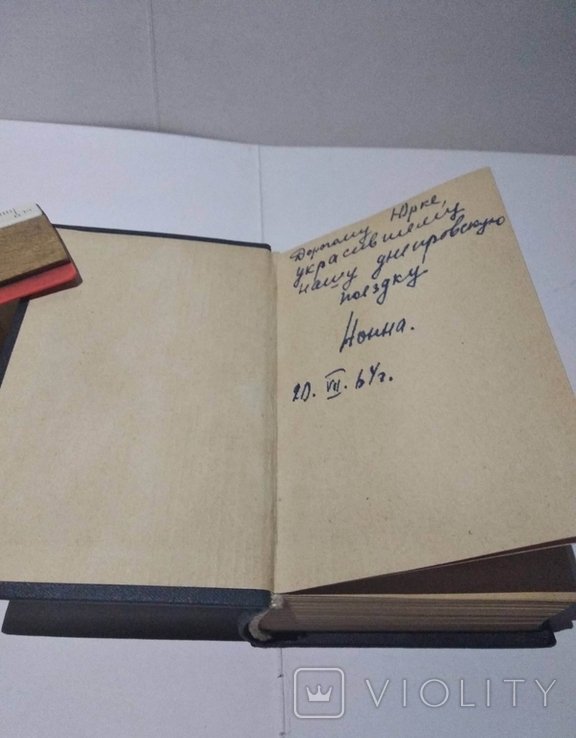 Дорогому Юрке,
украсившему
нашу днепровскую
поездку
Нонна.
20. VII. 64г.
VIOLITY